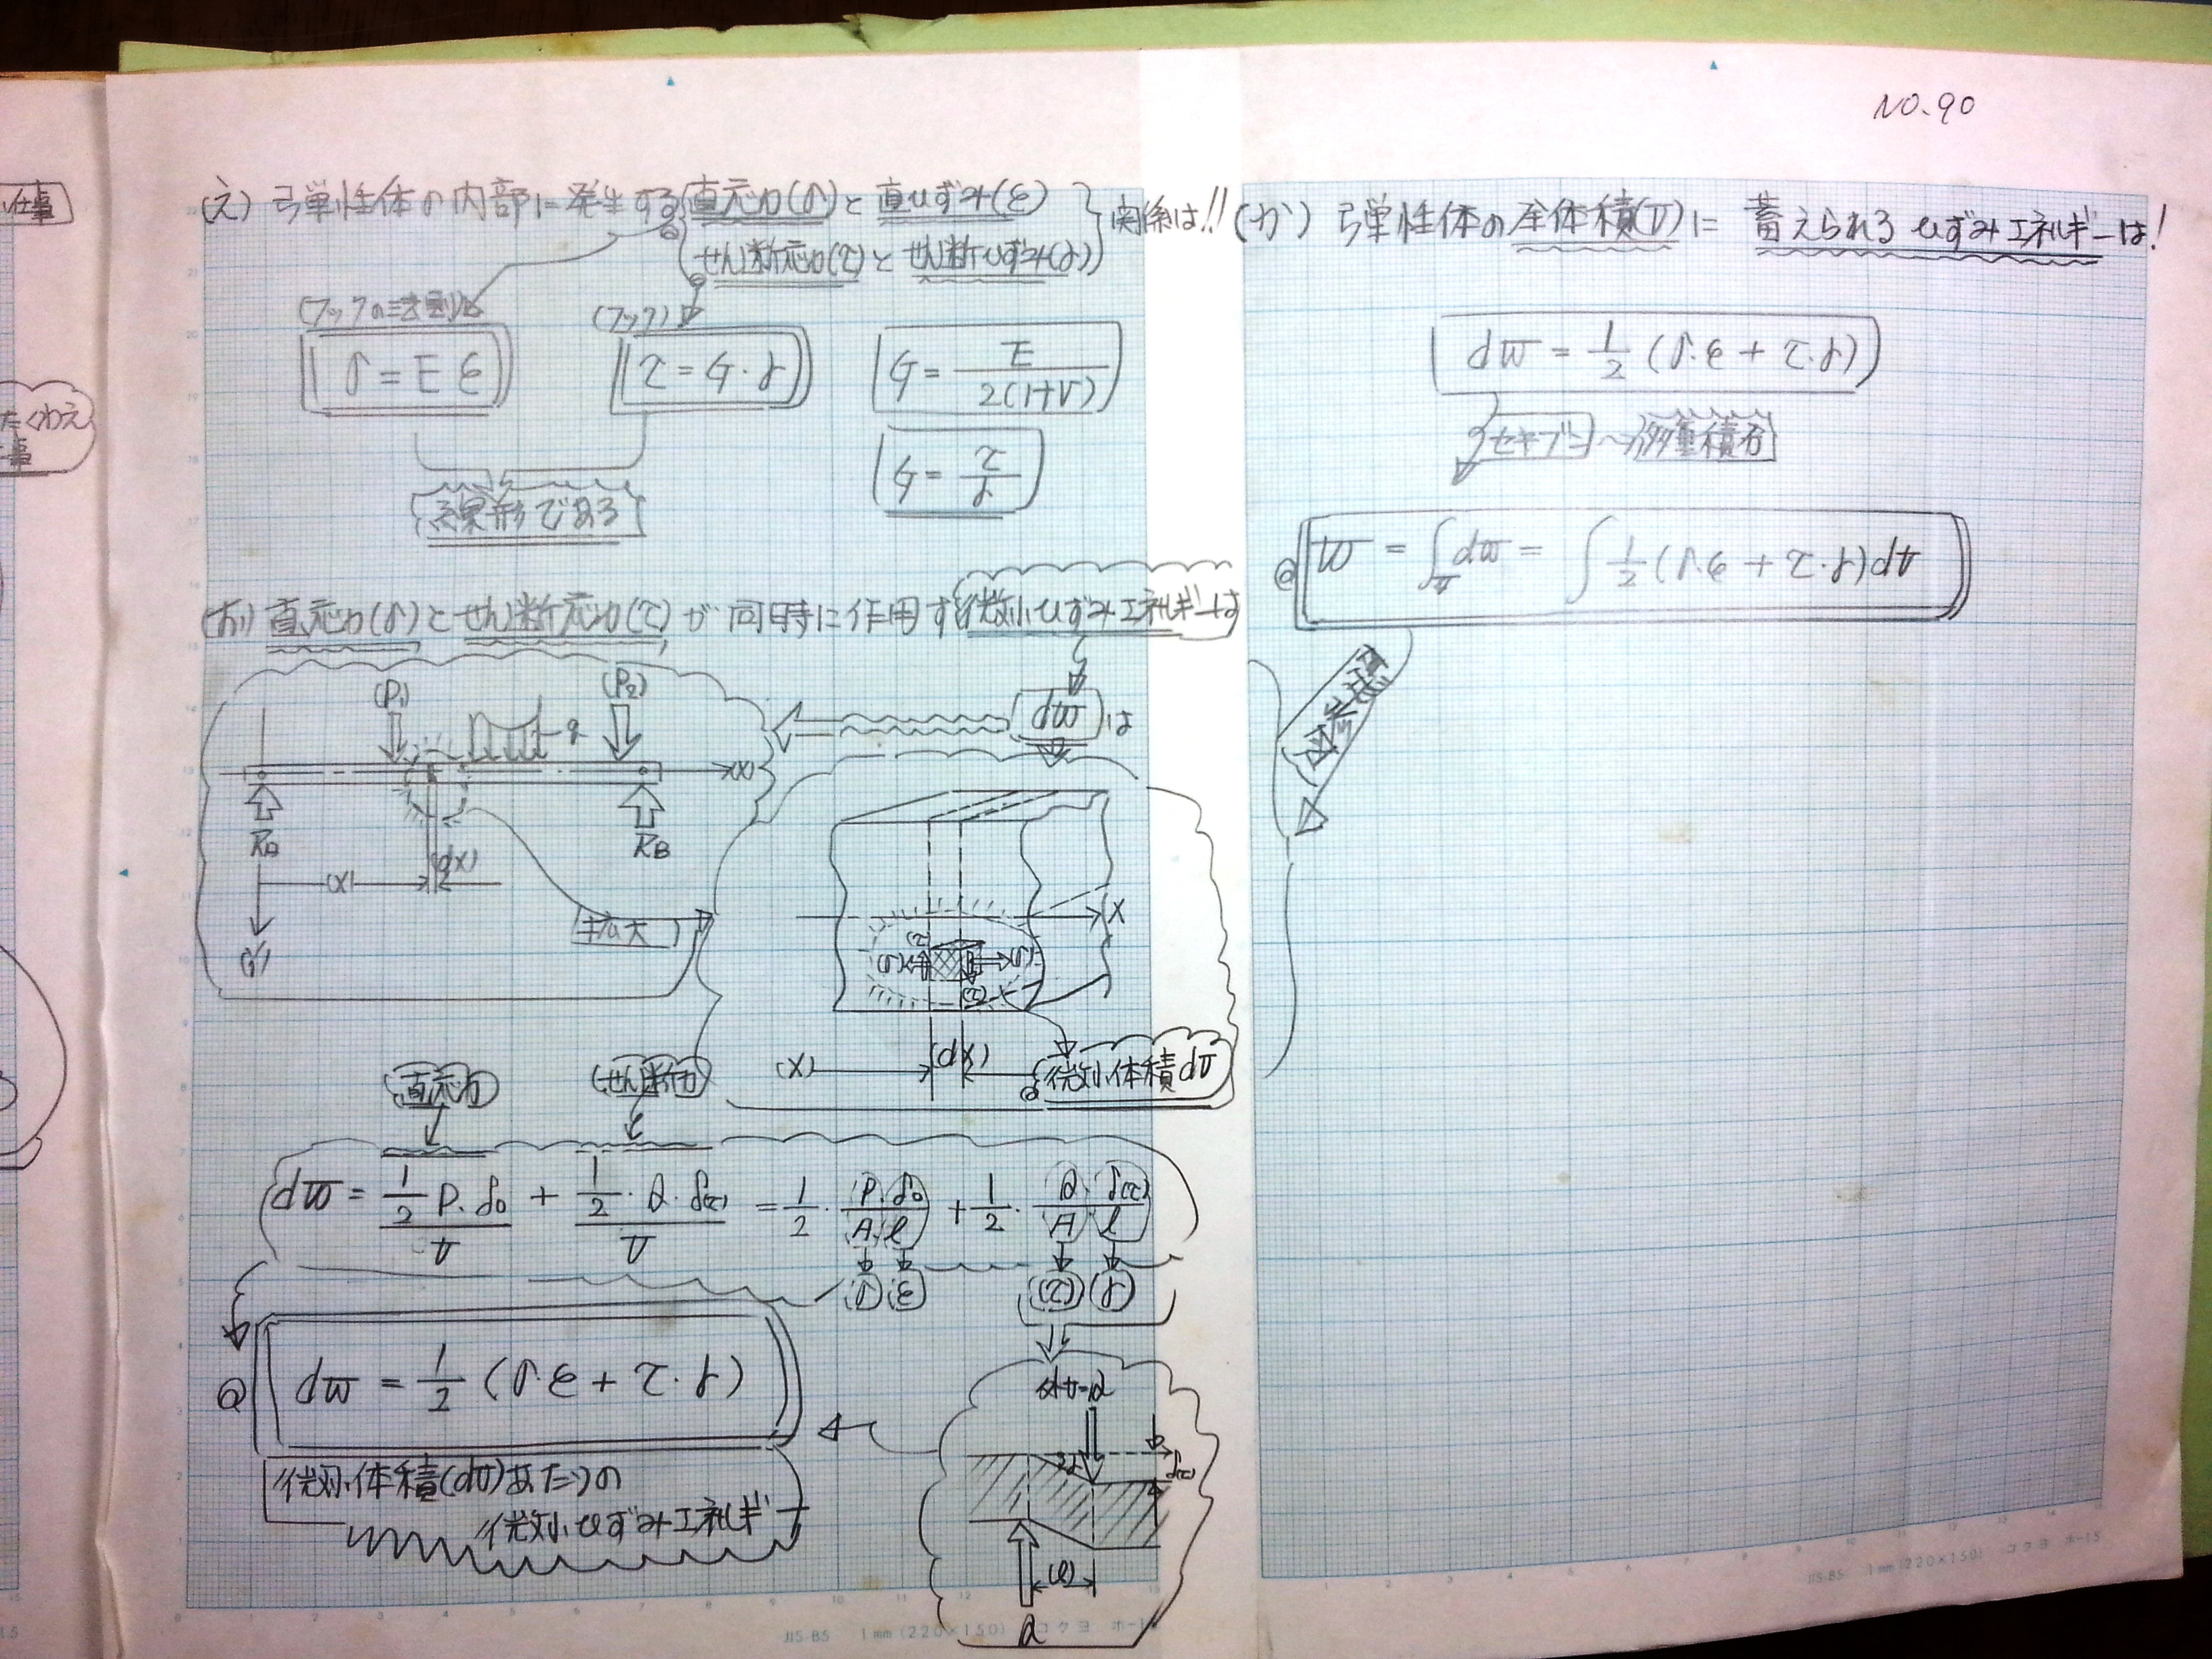 NO.90
仕事
(え) 弾性体の内部に発生する 直応力(σ)と直ひずみ(ε)
せん断応力(τ)とせん断ひずみ(γ)
関係は!!
(フックの法則)
σ = E ε
(フック)
τ = G・γ
G = E / 2(1+ν)
G = τ / γ
線形である
(お) 直応力(σ)とせん断応力(τ)が同時に作用す 微小ひずみエネルギーは
dw は
(P₁)
(P₂)
q
(x)
RA
RB
(x)
(dx)
(y)
拡大
x
(τ)
(σ)
(σ)
(τ)
(x)
(dx)
微小体積dv
直応力
せん断力
dw = 1/2 P・δ₀ / v + 1/2・Q・δ(τ) / v = 1/2・P・δ₀ / A・l + 1/2・Q・δ(τ) / A・l
(σ) (ε) (τ) (γ)
dw = 1/2 (σ・ε + τ・γ)
微小体積(dv)あたりの
微小ひずみエネルギー
γ
δ(τ)
(l)
Q
JIS-B5 1mm(220×150) コクヨ ホ-15
(か) 弾性体の全体積(V)に 蓄えられるひずみエネルギーは!
dw = 1/2 (σ・ε + τ・γ)
セキブン〜多重積分
w = ∫v dw = ∫ 1/2 (σ・ε + τ・γ)dv
図参照
JIS-B5 1mm(220×150) コクヨ ホ-15